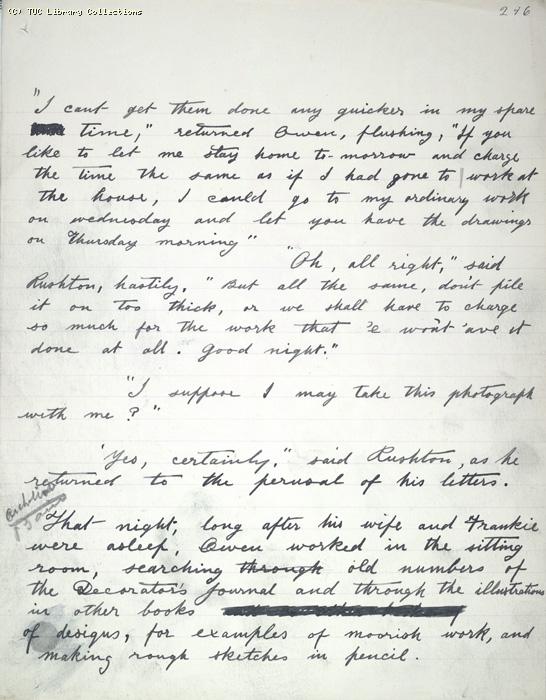 (C) TUC Library Collections
246
"I cant get them done any quicker in my spare
time," returned Owen, flushing, "If you
like to let me stay home to-morrow and charge
the time the same as if I had gone to work at
the house, I could go to my ordinary work
on wednesday and let you have the drawings
on Thursday morning"
"Oh, all right," said
Rushton, hastily, "But all the same, don't pile
it on too thick, or we shall have to charge
so much for the work that 'e won't 'ave it
done at all. Good night."
"I suppose I may take this photograph
with me?"
'Yes, certainly," said Rushton, as he
returned to the perusal of his letters.
That night, long after his wife and Frankie
were asleep, Owen worked in the sitting
room, searching through old numbers of
the Decorators Journal and through the illustrations
in other books
of designs, for examples of moorish work, and
making rough sketches in pencil.